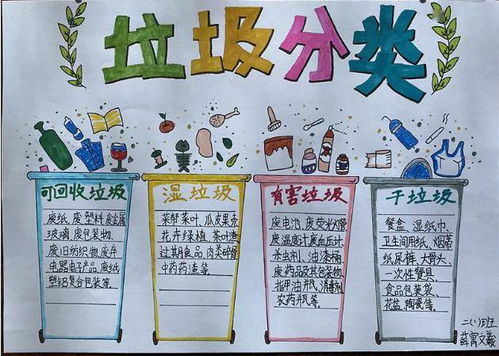 垃圾分类
可回收垃圾
废纸、废塑料、废金属
玻璃、废包装物、
废旧纺织物、废弃
电器电子产品、废纸
塑铝复合包装等。
湿垃圾
菜梗菜叶、瓜皮果
花卉绿植、茶叶渣
过期食品、肉类碎骨
中药药渣等。
有害垃圾
废电池、废荧光灯管
废温度计、废血压计、
杀虫剂、油漆桶、
废药品及其包装物、
指甲油瓶、消毒剂
农药瓶等。
干垃圾
餐盒、湿纸巾、
卫生间用纸、烟蒂
纸尿裤、大骨头、
一次性餐具、
食品包装袋、
花盆、陶瓷等。
二(1)班
薛富文羲